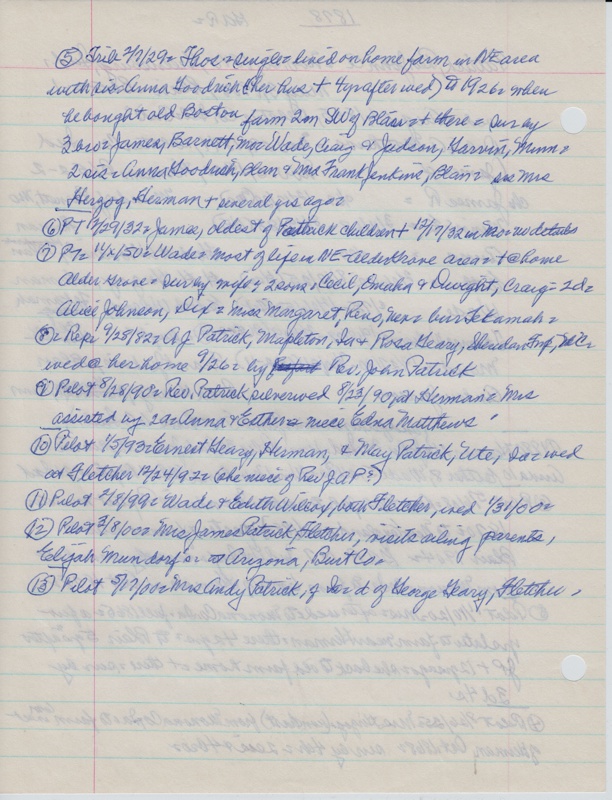 ⑤ Trib 2/7/29= Thos = single = lived on home farm in NE area
with sis Anna Goodrich (her hus + 4 yr after wed) til 1926= when
he bought old Boston farm 2m SW of Blair = + there = sur by
3 bro = James, Barnett, Mo= Wade, Craig & Judson, Garvin, Minn=
2 sis = Anna Goodrich, Blair & Mrs Frank Jenkins, Blair = sis Mrs
Herzog, Herman + several yrs ago=
⑥ PT 12/29/32= James, oldest of Patrick children + 12/17/32 in Mo= no details
⑦ PT= Wade= most of life in NE-Alder Grove area= + @ home
Alder Grove = sur by wife = 2 sons = Cecil, Omaha & Dwight, Craig= 2d=
Alice Johnson, Dix = Miss Margaret, Reno, Nev= bur Tekamah=
⑧= Rep= 9/28/82= A.J. Patrick, Mapleton, Ia & Rosa Geary, Sheridan Twp, WC=
wed @ her home 9/26= by Rev. John Patrick
⑨ Pilot 8/28/90= Rev. Patrick 8/23/90, at Herman = Mrs
assisted by 2d= Anna & Esther= niece Edna Matthews
⑩ Pilot 1/5/93= Ernest Geary, Herman, & May Patrick, Ute, Ia= wed
at Fletcher 12/24/92= (she niece of Rev JAP?)
⑪ Pilot 2/8/99= Wade & Edith Wilcox, both Fletcher, wed 1/31/00=
⑫ Pilot 3/8/00= Mrs James Patrick, Fletcher, visits along parents,
Elijah Mundorf = Arizona, Burt Co=
⑬ Pilot 5/17/00= Mrs Andy Patrick, of Ia= d of George Geary, Fletcher